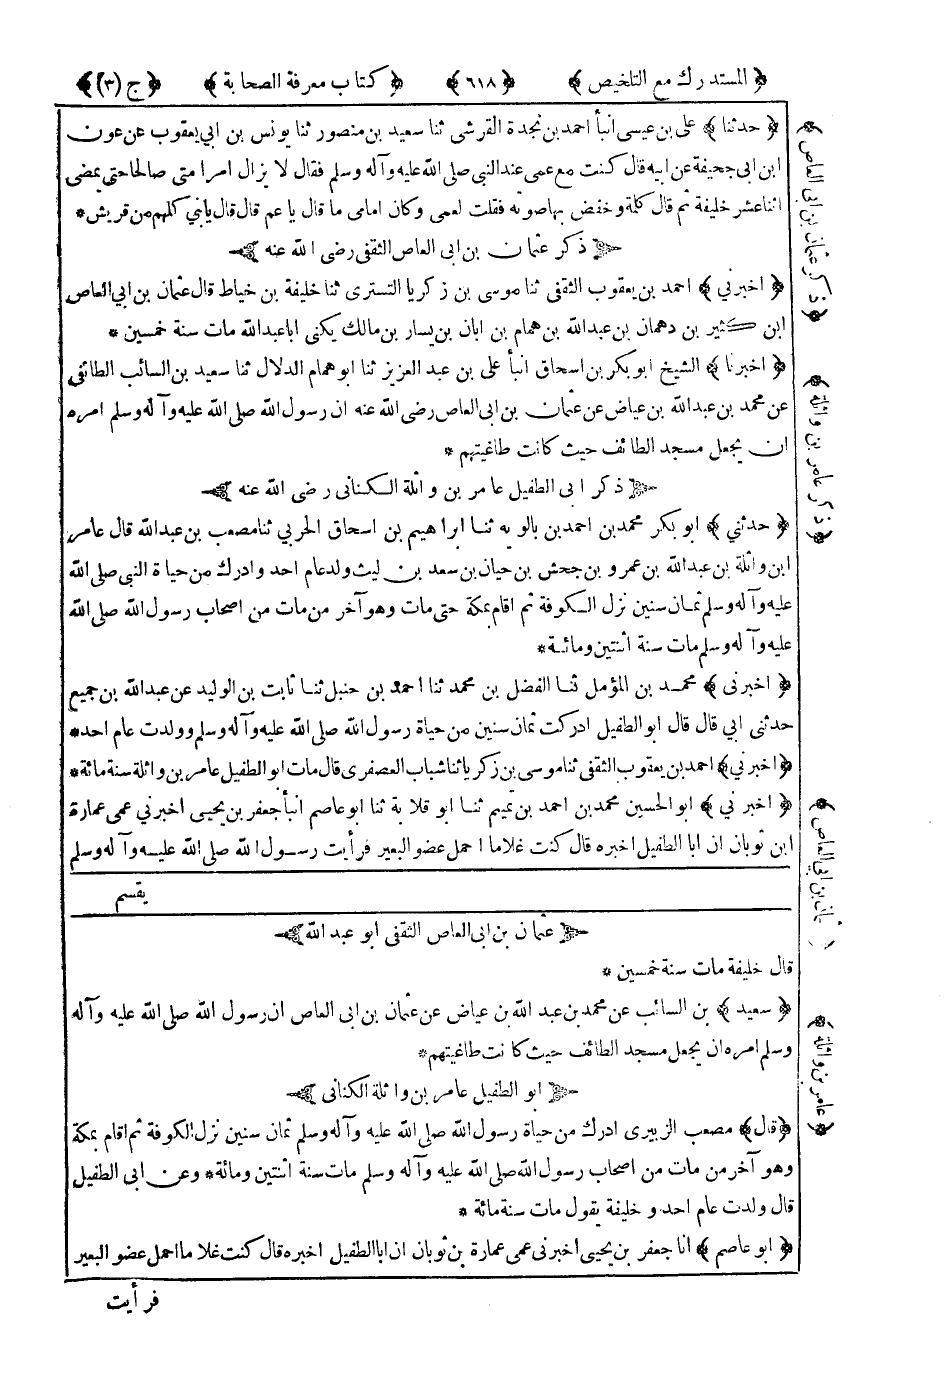 ﴿ المستدرك مع التلخيص ﴾ ﴿ ٦١٨ ﴾ ﴿ كتاب معرفة الصحابة ﴾ ﴿ ج (٣) ﴾
﴿ حدثنا ﴾ على بن عيسى انبأ احمد بن نجدة القرشى ثنا سعيد بن منصور ثنا يونس بن ابي يعقوب عن عون
ابن ابى جحيفة عن ابيه قال كنت مع عمى عند النبى صلى الله عليه وآله وسلم فقال لا يزال امر امتى صالحا حتى يمضى
اثنا عشر خليفة ثم قال كلمة وخفض بها صوته فقلت لعمى وكان امامى ما قال يا عم قال قال يابني كلهم من قريش *
﴿ ذكر عثمان بن ابى العاص الثقفى رضى الله عنه ﴾
﴿ اخبرني ﴾ احمد بن يعقوب الثقفى ثنا موسى بن زكريا التسترى ثنا خليفة بن خياط قال عثمان بن ابي العاص
ابن كثير بن دهمان بن عبدالله بن همام بن ابان بن يسار بن مالك يكنى ابا عبدالله مات سنة خمسين *
﴿ اخبرنا ﴾ الشيخ ابو بكر بن اسحاق انبأ على بن عبد العزيز ثنا ابو همام الدلال ثنا سعيد بن السائب الطائفى
عن محمد بن عبدالله بن عياض عن عثمان بن ابى العاص رضى الله عنه ان رسول الله صلى الله عليه وآله وسلم امره
ان يجعل مسجد الطائف حيث كانت طاغيتهم *
﴿ ذكر ابى الطفيل عامر بن واثلة الكنانى رضى الله عنه ﴾
﴿ حدثني ﴾ ابو بكر محمد بن احمد بن بالويه ثنا ابراهيم بن اسحاق الحربي ثنا مصعب بن عبدالله قال عامر
ابن واثلة بن عبدالله بن عمرو بن جحش بن حيان بن سعد بن ليث ولد عام احد وادرك من حياة النبى صلى الله
عليه وآله وسلم ثمان سنين نزل الكوفة ثم اقام بمكة حتى مات وهو آخر من مات من اصحاب رسول الله صلى الله
عليه وآله وسلم مات سنة اثنتين ومائة *
﴿ اخبرنى ﴾ محمد بن المؤمل ثنا الفضل بن محمد ثنا احمد بن حنبل ثنا ثابت بن الوليد عن عبدالله بن جميع
حدثنى ابي قال قال ابو الطفيل ادركت ثمان سنين من حياة رسول الله صلى الله عليه وآله وسلم وولدت عام احد *
﴿ اخبرني ﴾ احمد بن يعقوب الثقفى ثنا موسى بن زكريا ثنا شباب العصفرى قال مات ابو الطفيل عامر بن واثلة سنة مائة *
﴿ اخبرني ﴾ ابو الحسين محمد بن احمد بن تميم ثنا ابو قلابة ثنا ابو عاصم انبأ جعفر بن يحيى اخبرني عمى عمارة
ابن ثوبان ان ابا الطفيل اخبره قال كنت غلاما احمل عضو البعير فرأيت رسول الله صلى الله عليه وآله وسلم
يقسم
﴿ عثمان بن ابى العاص الثقفى ابو عبد الله ﴾
قال خليفة مات سنة خمسين *
﴿ سعيد ﴾ بن السائب عن محمد بن عبد الله بن عياض عن عثمان بن ابى العاص ان رسول الله صلى الله عليه وآله
وسلم امره ان يجعل مسجد الطائف حيث كانت طاغيتهم *
﴿ ابو الطفيل عامر بن واثلة الكنانى ﴾
﴿ قال ﴾ مصعب الزبيرى ادرك من حياة رسول الله صلى الله عليه وآله وسلم ثمان سنين نزل الكوفة ثم اقام بمكة
وهو آخر من مات من اصحاب رسول الله صلى الله عليه وآله وسلم مات سنة اثنتين ومائة * وعن ابى الطفيل
قال ولدت عام احد و خليفة يقول مات سنة مائة *
﴿ ابو عاصم ﴾ انا جعفر بن يحيى اخبرنى عمى عمارة بن ثوبان ان ابا الطفيل اخبره قال كنت غلاما احمل عضو البعير
فرأيت
﴿ ذكر عثمان بن ابى العاص ﴾
﴿ ذكر عامر بن واثلة ﴾
بن ابي العاص
﴿ عامر بن واثلة ﴾